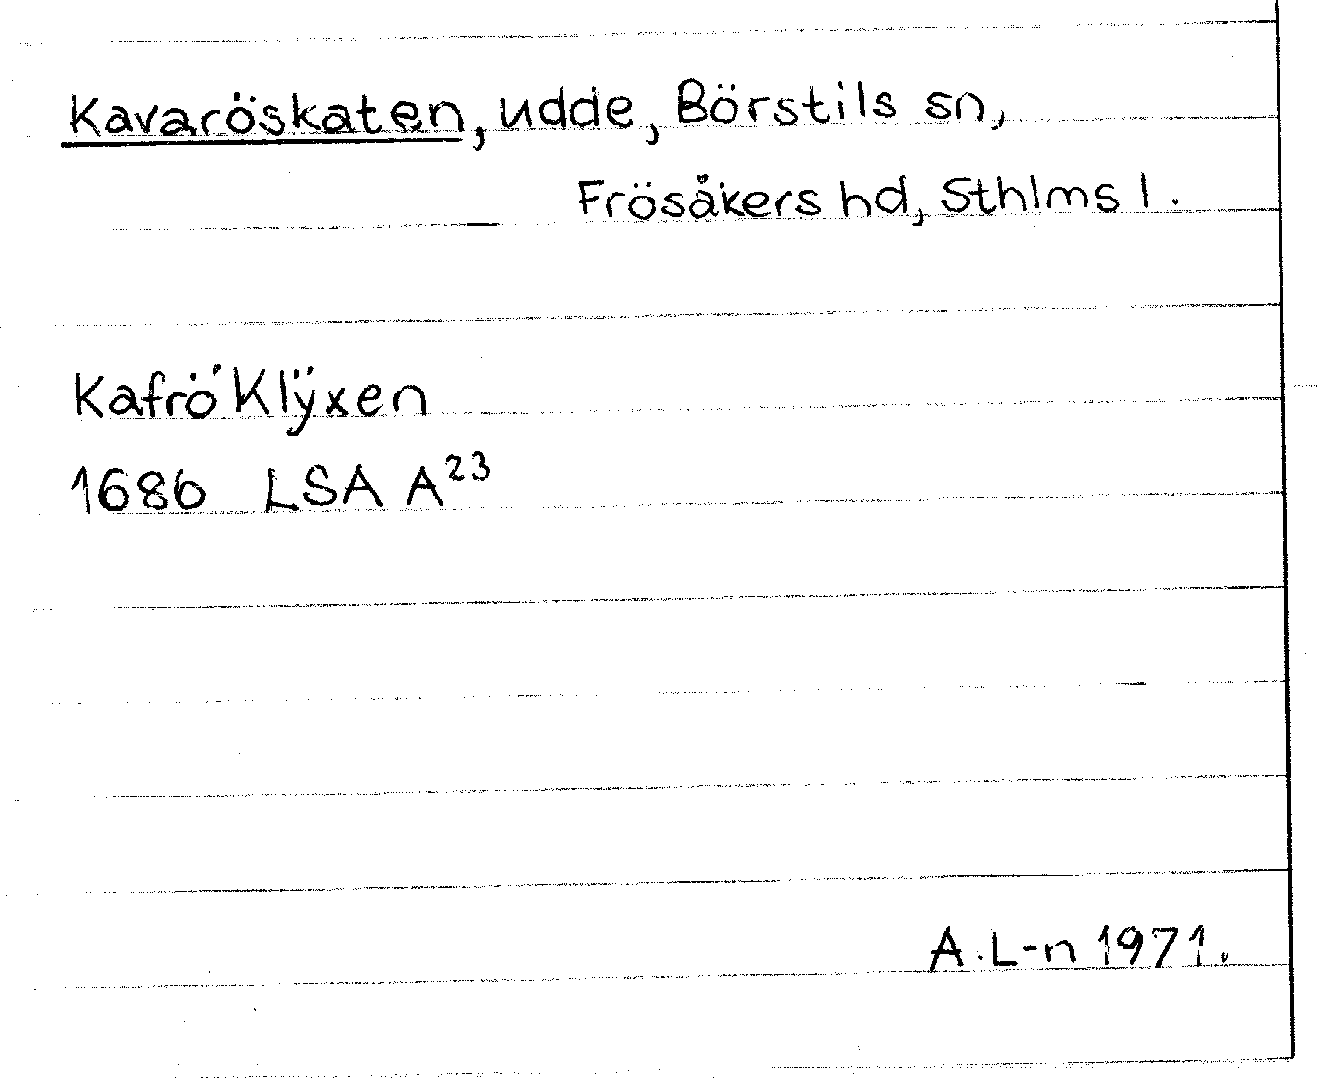 Kavaröskaten, udde, Börstils sn,
Frösåkers hd, Sthlms l.
Kafrö Klÿxen
1686 LSA A²³
A.L-n 1971.